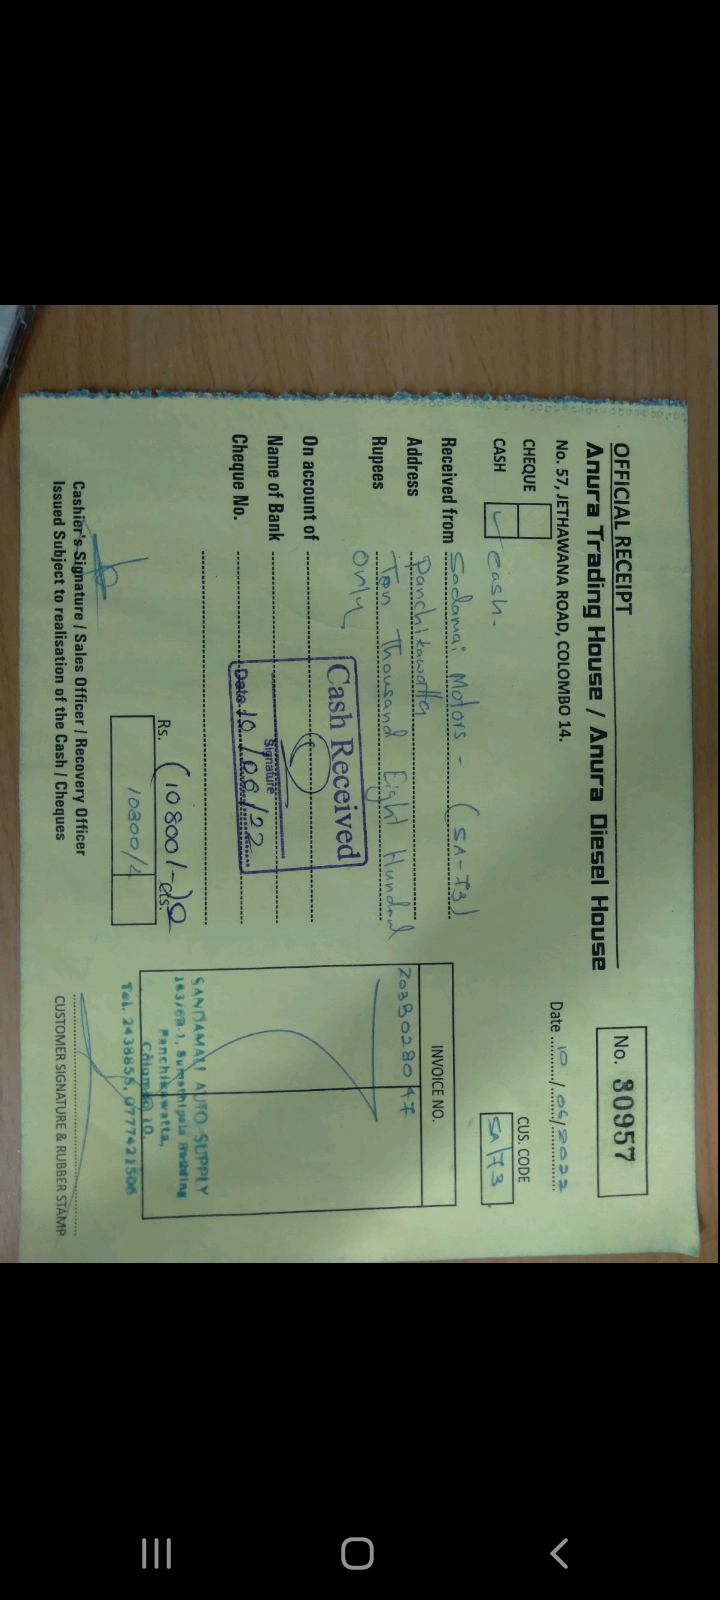 OFFICIAL RECEIPT
Anura Trading House / Anura Diesel House
No. 57, JETHAWANA ROAD, COLOMBO 14.
No. 30957
Date 10/06/2022
CHEQUE
CASH cash.
CUS. CODE
SA/73
Received from Sadamai Motors - (SA-73)
Address Panchikawatta
Rupees Ten Thousand Eight Hundred
only
On account of
Name of Bank
Cheque No.
Cash Received
Signature
Date 10/06/22
INVOICE NO.
203B028047
Rs. (10800/-) Cts.
10800/-
SANDAMALI AUTO SUPPLY
163/6B-1, Sumathipala Building
Panchikawatta,
Colombo 10.
Tel. 2438855, 0777421506
Cashier's Signature / Sales Officer / Recovery Officer
Issued Subject to realisation of the Cash / Cheques
CUSTOMER SIGNATURE & RUBBER STAMP